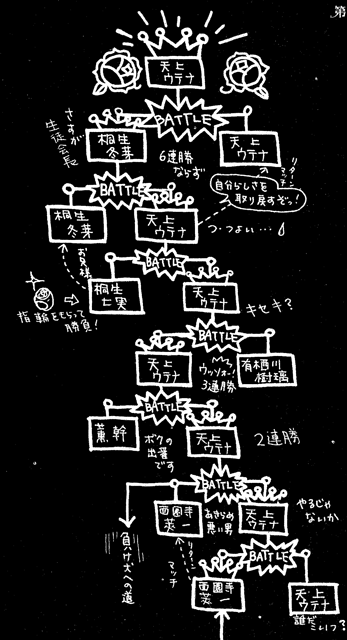 第
天上
ウテナ
BATTLE
さすが
生徒会長
桐生
冬芽
6連勝
ならず
天上
ウテナ
リターン
マッチ
自分らしさを
取り戻すぞっ!
BATTLE
桐生
冬芽
天上
ウテナ
つ・つよい…
お兄様
BATTLE
桐生
七実
天上
ウテナ
指輪をもらって
勝負!
キセキ?
BATTLE
天上
ウテナ
ウッソォー!
3連勝
有栖川
樹璃
BATTLE
薫 幹
ボクの
出番
です
天上
ウテナ
2連勝
BATTLE
西園寺
莢一
あきらめ
悪い男
天上
ウテナ
やるじゃ
ないか
負け犬への道
リターン
マッチ
BATTLE
西園寺
莢一
天上
ウテナ
誰だこいつ?